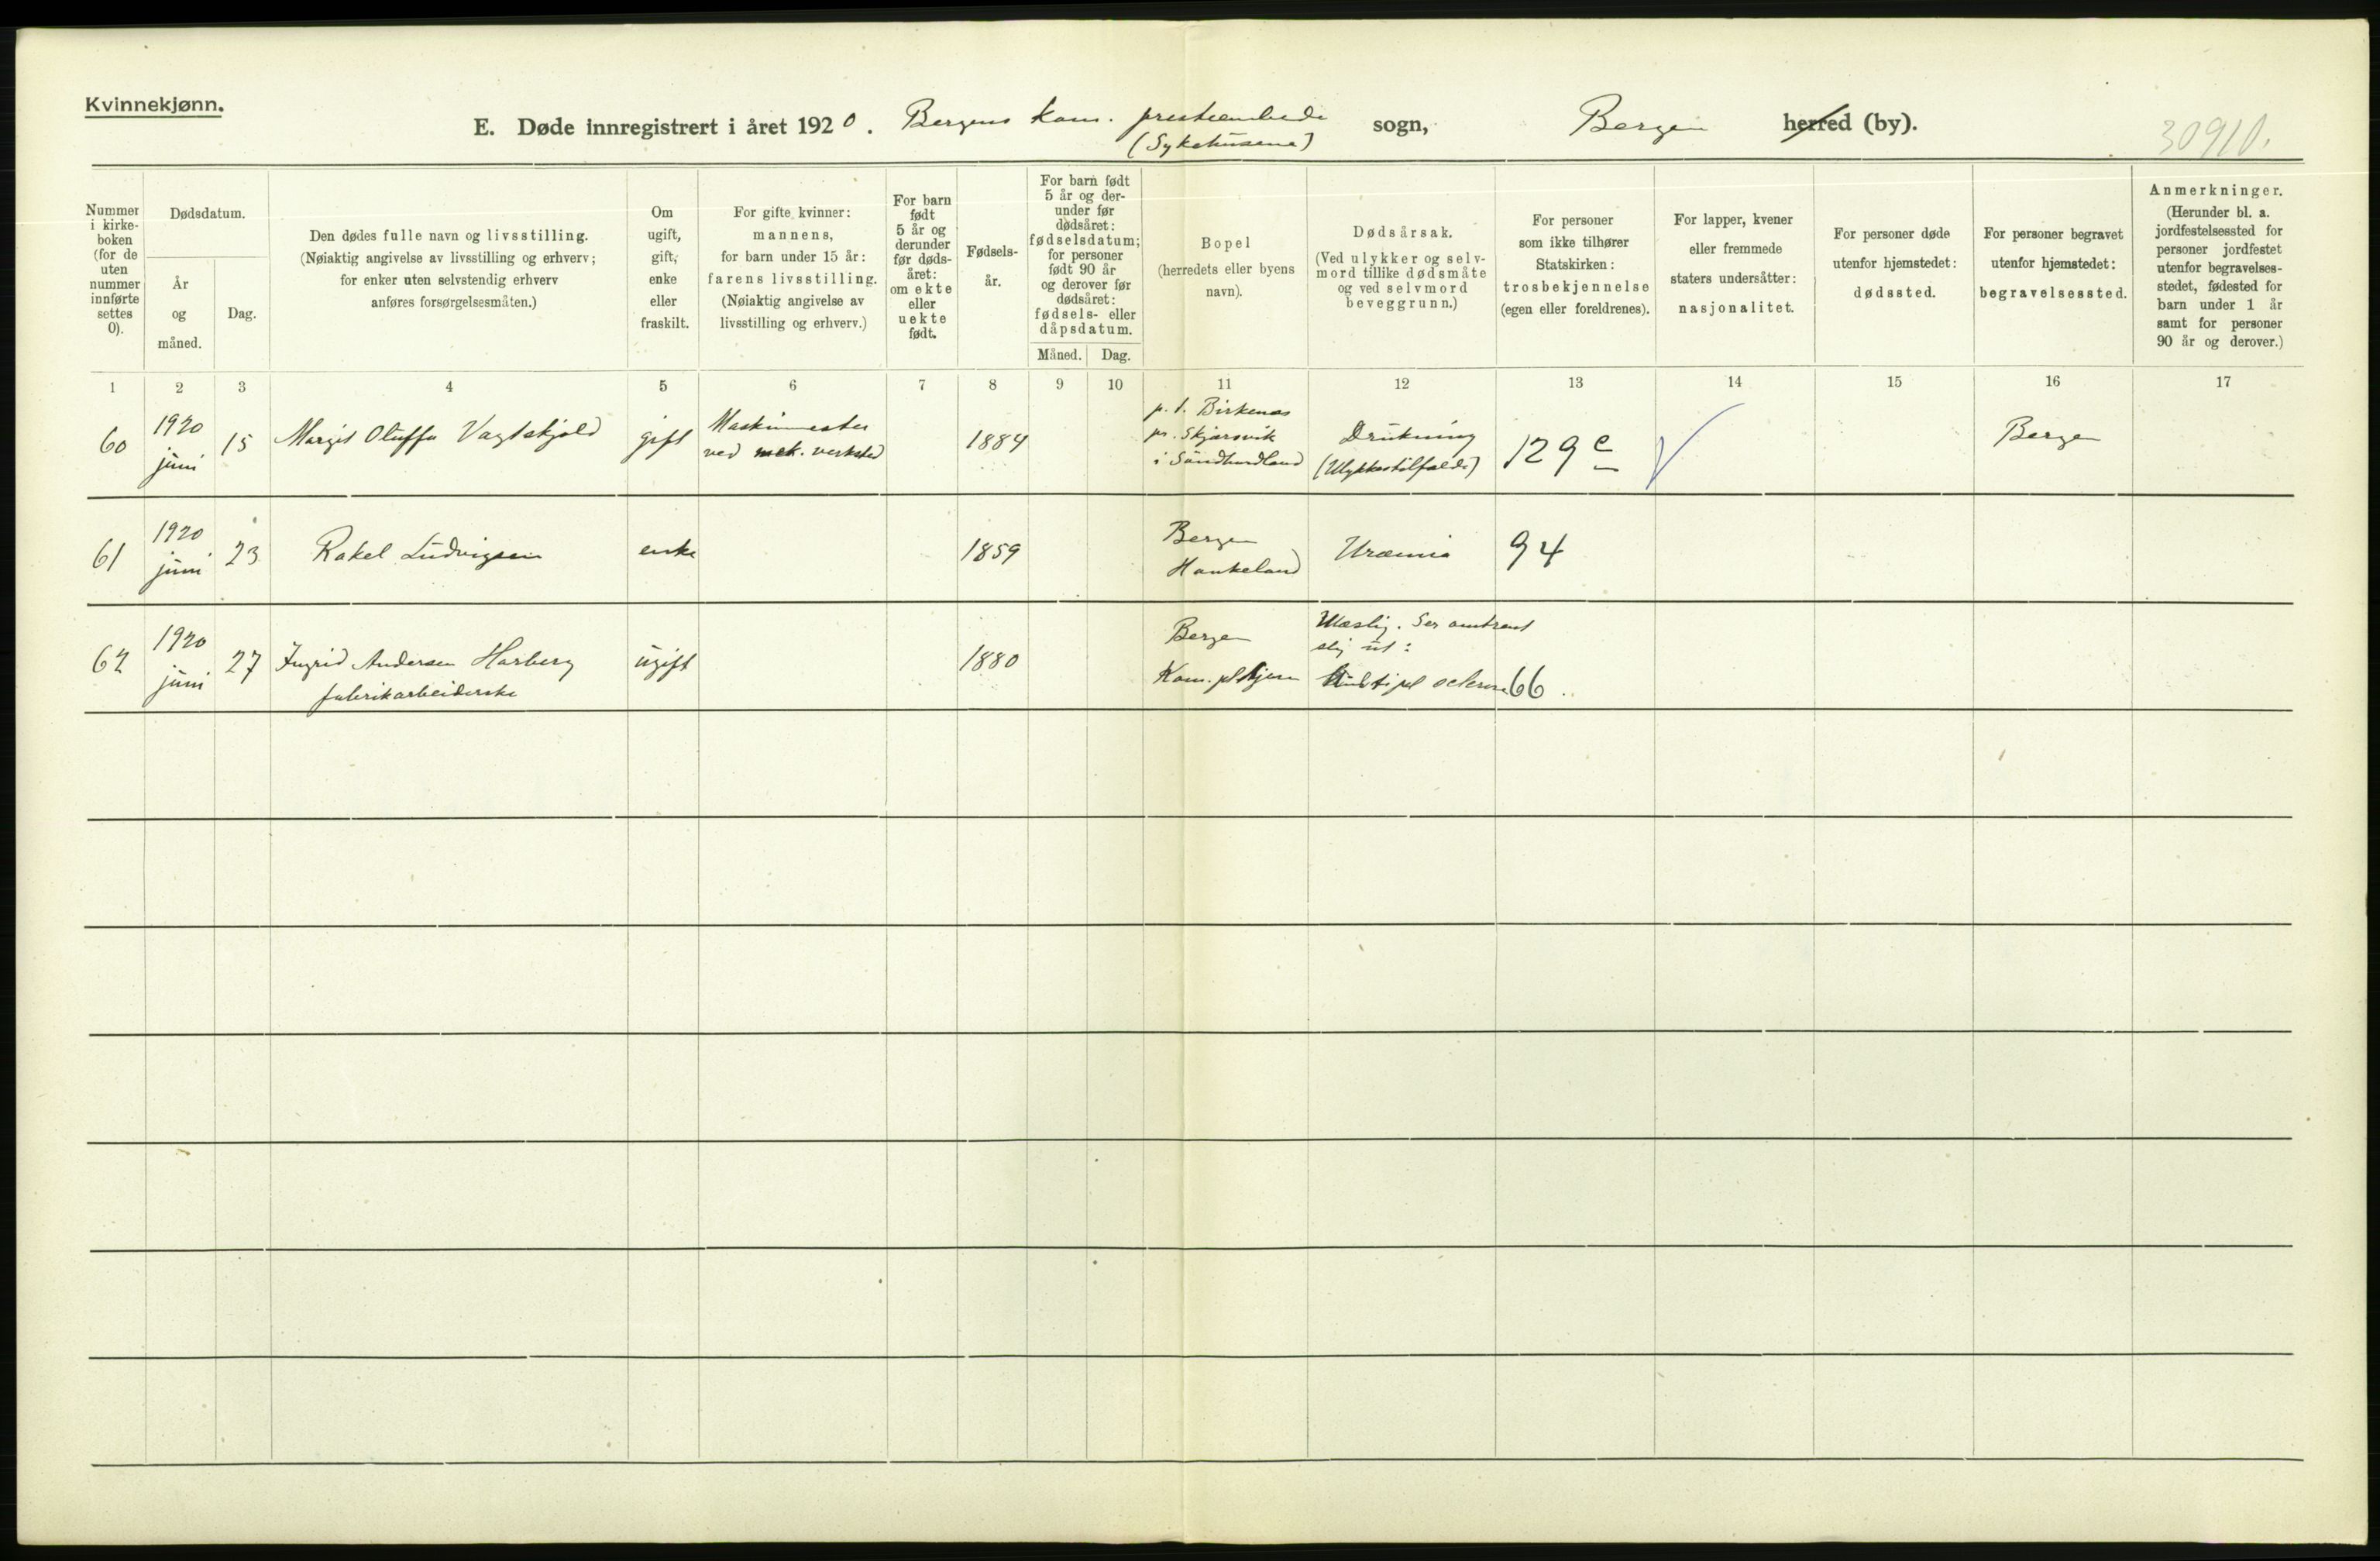 Kvinnekjønn.
E. Døde innregistrert i året 1920. Bergens kom. presteembede sogn, Bergen herred (by).
(Sykehusene)
30910.
Nummer i kirke-boken (for de uten nummer innførte settes 0).
Dødsdatum.
År og måned.
Dag.
Den dødes fulle navn og livsstilling.
(Nøiaktig angivelse av livsstilling og erhverv;
for enker uten selvstendig erhverv
anføres forsørgelsesmåten.)
Om ugift, gift, enke eller fraskilt.
For gifte kvinner:
mannens,
for barn under 15 år:
farens livsstilling.
(Nøiaktig angivelse av
livsstilling og erhverv.)
For barn født 5 år og derunder før døds-året: om ekte eller uekte født.
Fødsels-år.
For barn født 5 år og der-under før dødsåret: fødselsdatum; for personer født 90 år og derover før dødsåret: fødsels- eller dåpsdatum.
Måned. Dag.
Bopel
(herredets eller byens
navn).
Dødsårsak.
(Ved ulykker og selv-
mord tillike dødsmåte
og ved selvmord
beveggrunn.)
For personer
som ikke tilhører
Statskirken:
trosbekjennelse
(egen eller foreldrenes).
For lapper, kvener
eller fremmede
staters undersåtter:
nasjonalitet.
For personer døde
utenfor hjemstedet:
dødssted.
For personer begravet
utenfor hjemstedet:
begravelsessted.
Anmerkninger.
(Herunder bl. a.
jordfestelsessted for
personer jordfestet
utenfor begravelses-
stedet, fødested for
barn under 1 år
samt for personer
90 år og derover.)
1 2 3 4 5 6 7 8 9 10 11 12 13 14 15 16 17
60 1920 juni 15 Margit Oluffa Vagtskjold gift Maskinmester ved mek. verksted 1884 p. t. Birkenes pr. Skjærsvik i Søndhordland Drukning (Ulykkestilfælde) 129 e Bergen
61 1920 juni 23 Rakel Ludvigsen enke 1859 Bergen Haukeland Uræmia 94
62 1920 juni 27 Ingrid Andersen Harberg fabrikarbeiderske ugift 1880 Bergen Kom. pl.hjem Ulæslig. Ser omtrent slig ut: Multipel sclerose 66.